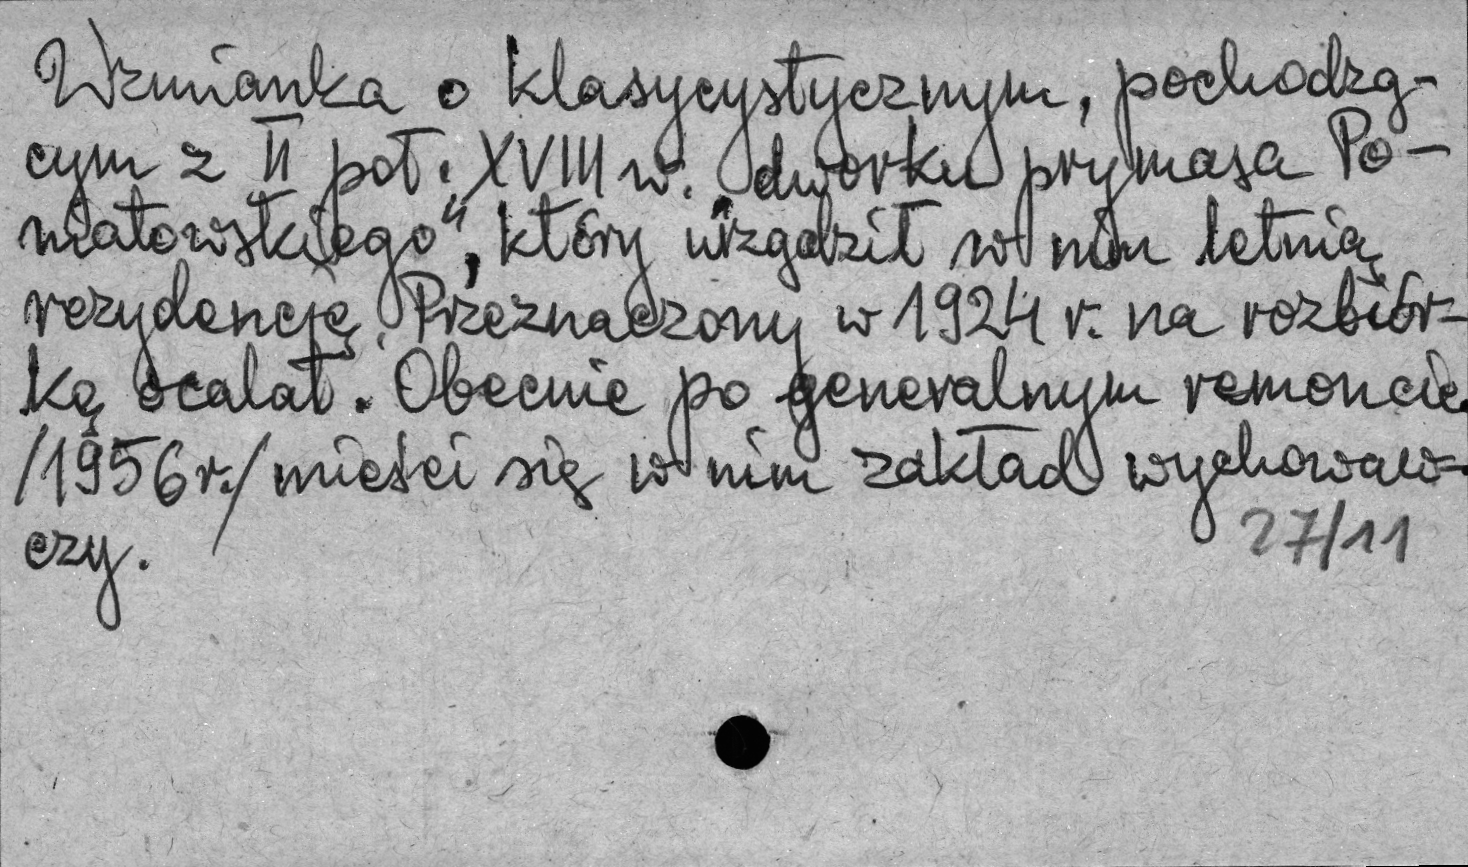 Wzmianka o klasycystycznym, pochodzą-
cym z II poł. XVIII w. „dworku prymasa Po-
niatowskiego", który urządził w nim letnią
rezydencję. Przeznaczony w 1924 r. na rozbiór-
kę ocalał. Obecnie po generalnym remoncie
/1956 r./ mieści się w nim zakład wychowaw-
czy.
27/11